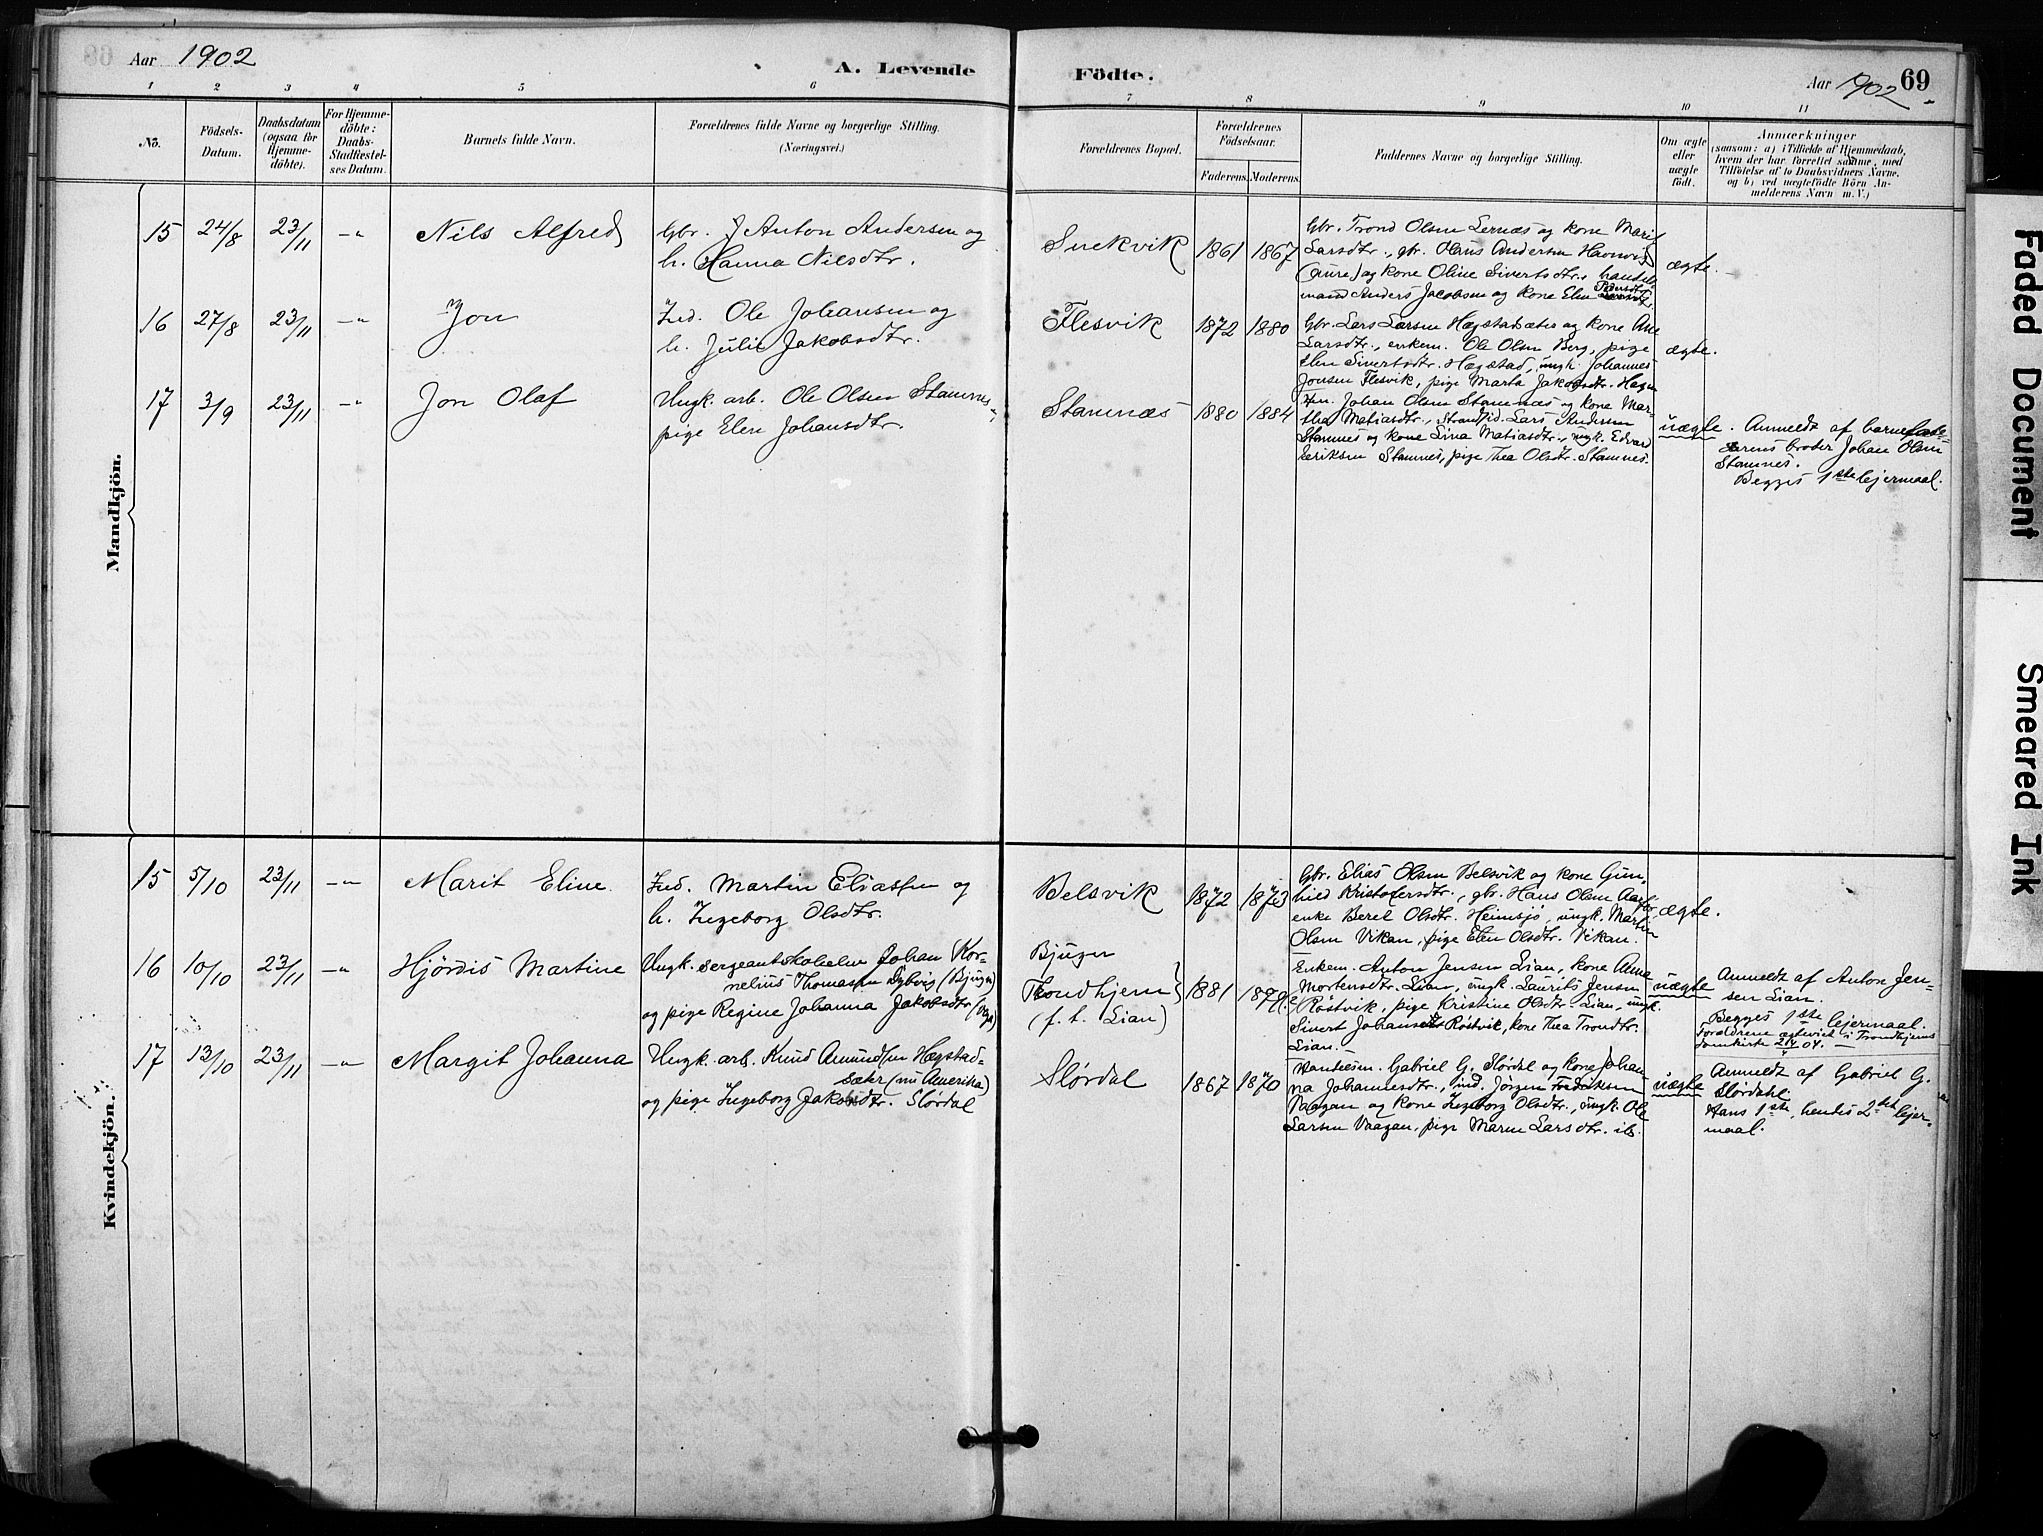 Aar 1902
A. Levende
Födte.
Aar 1902
69
1 2 3 4 5 6 7 8 9 10 11
No.
Födsels-
Datum.
Daabsdatum
(ogsaa for
Hjemme-
döbte).
For Hjemme-
döbte:
Daabs-
Stadfæstel-
ses Datum.
Barnets fulde Navn.
Forældrenes fulde Navne og borgerlige Stilling.
(Næringsvei.)
Forældrenes Bopæl.
Forældrenes
Födselsaar.
Faderens. Moderens.
Faddernes Navne og borgerlige Stilling.
Om ægte
eller
uægte
födt.
Anmærkninger
(saasom: a) i Tilfælde af Hjemmedaab,
hvem der har forrettet samme, med
Tilföielse af to Daabsvidners Navne.
og b) ved uægtefödte Börn An-
melderens Navn m. V.)
Mandkjön.
15 24/8 23/11 -"-
Nils Alfred
Gbr. J Anton Andersen og
h. Hanna Nilsdtr.
Snekvik
1861 1867
Gbr. Trond Olsen Lernæs og kone Marit
Larsdtr., gbr. Olaus Andersen Havnvig
(Aure) og kone Oline Sivertsdtr., handels-
mand Anders Jacobsen og kone Elen Pedersdtr.
ægte.
16 27/8 23/11 -"-
Jon
Ind. Ole Johansen og
h. Julie Jakobsdtr.
Flesvik
1872 1880
Gbr. Lars Larsen Hægstadsæter og kone Ane
Larsdtr., enkem. Ole Olsen Berg, pige
Elen Sivertsdtr. Hægstad, ungk. Johannes
Jonsen Flesvik, pige Marta Jakobsdtr.
ægte.
17 3/9 23/11 -"-
Jon Olaf
Ungk. arb. Ole Olsen Stamnes,
pige Elen Johansdtr.
Stamnæs
1880 1884
Johan Olsen Stamnæs og kone Mar-
tha Matiasdtr., Strandsid. Lars Andersen
Stamnes og kone Lina Matiasdtr., ungk. Edvard
Eriksen Stamnes, pige Thea Olsdtr. Stamnes.
uægte.
Anmeldt af barnefade-
rens broder Johan Olsen
Stamnes.
Begges 1ste lejermaal.
Kvindekjön.
15 5/10 23/11 -"-
Marit Eline
Ind. Martin Eliassen og
h. Ingeborg Olsdtr.
Belsvik
1872 1873
Gbr. Elias Olsen Belsvik og kone Gun-
hild Kristofersdtr., gbr. Hans Olsen
enke Beret Olsdtr. Heimsjö, ungk. Martin
Olsen Vikan, pige Elen Olsdtr. Vikan.
ægte.
16 10/10 23/11 -"-
Hjördis Martine
Ungk. sergeantskoleelev Johan Kor-
nelius Thomassen Dybvig (Bjugn)
og pige Regine Johanna Jakobsdtr
Bjugn
Trondhjem
(f. t. Lian)
1881
Enkem. Anton Jensen Lian, kone Anna
Mortensdtr. Lian, ungk. Laurits Jensen
Röstvik, pige Kristine Olsdtr. Lian, ungk.
Sivert Johansen Röstvik, kone Thea Trondtr.
Lian.
uægte
Anmeldt af Anton Jen-
sen Lian.
Begges 1ste lejermaal.
Forældrene ægteviet i Trondhjems
Domkirke 04.
17 13/10 23/11 -"-
Margit Johanna
Ungk. arb. Knud Amundsen Hægstad-
sæter (nu Amerika)
og pige Ingeborg Jakobsdtr. Slørdal
Slørdal
1867 1870
Handelsm. Gabriel G. Slördal og kone Johan-
na Johannesdtr., ind. Jörgen Fredriksen
Vaagan og kone Ingeborg Olsdtr., ungk. Ole
Larsen Vaagan, pige Maren Larsdtr. ib.
uægte
Anmeldt af Gabriel G.
Slördahl
Hans 1ste, hendes 2det lejer-
maal.
Faded Document
Smeared Ink